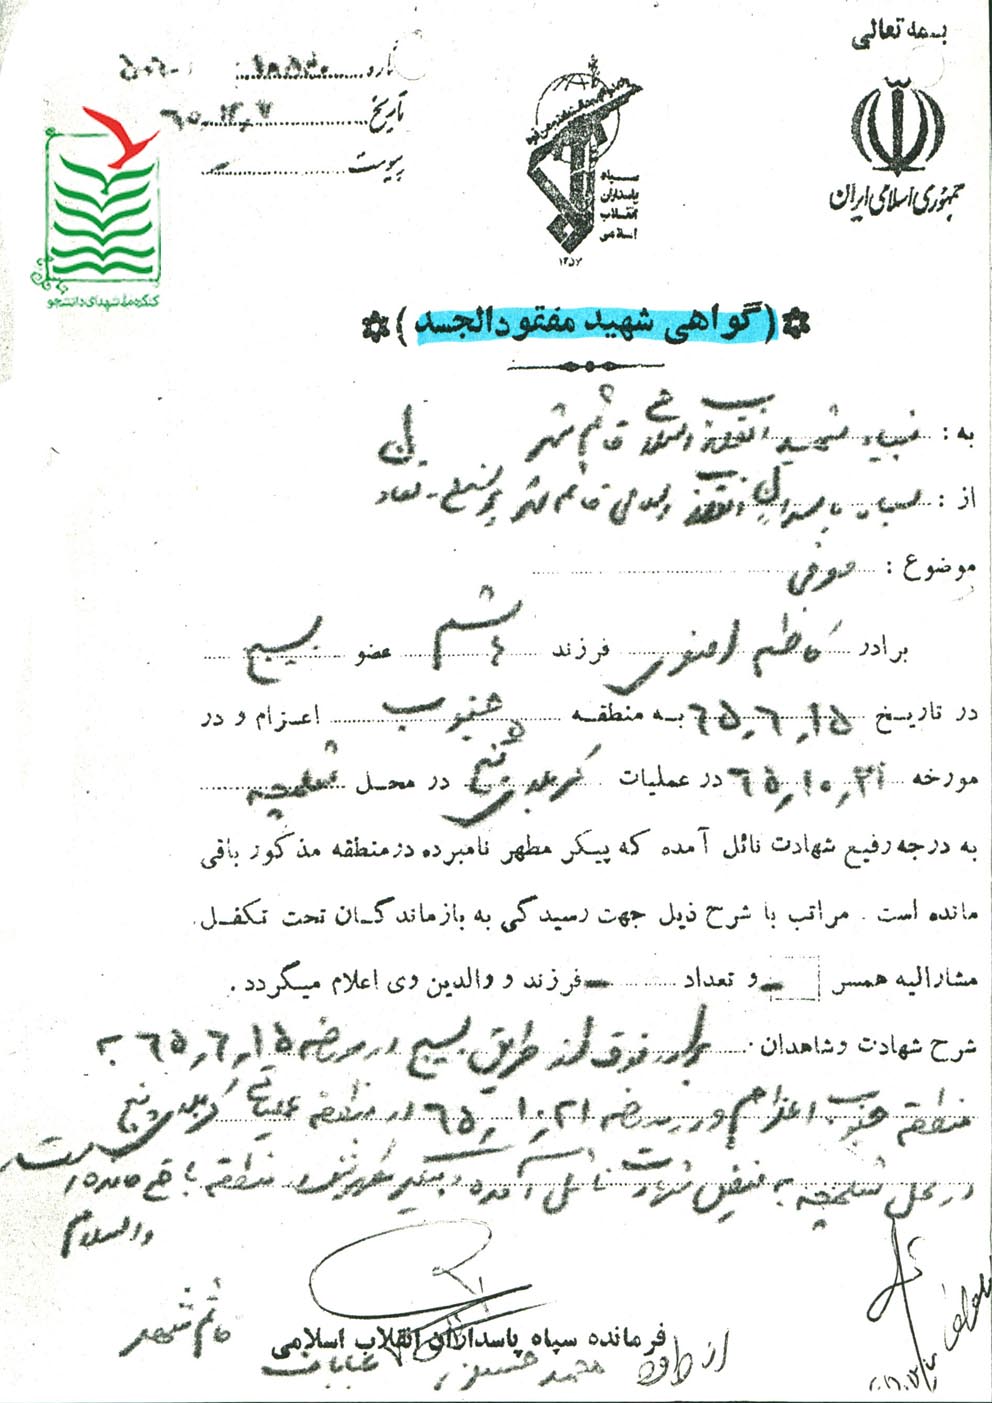 بسمه تعالی
جمهوری اسلامی ایران
سپاه
پاسداران
انقلاب
اسلامی
۱۳۵۷
تاریخ ۶۵٫۱۲٫۷
پیوست
کنگره ملی شهدای دانشجو
(گواهی شهید مفقودالجسد)
به : بنیاد شهید انقلاب اسلامی قائم شهر
از : سپاه پاسداران انقلاب اسلامی قائم شهر پرسنلی - تعاون
موضوع : معرفی
برادر کاظم فرزند هاشم عضو بسیج
در تاریخ ۶۵٫۶٫۱۵ به منطقه جنوب اعزام و در
مورخه ۶۵٫۱۰٫۲۱ در عملیات کربلای پنج در محل شلمچه
به درجه رفیع شهادت نائل آمده که پیکر مطهر نامبرده درمنطقه مذکور باقی
مانده است . مراتب با شرح ذیل جهت رسیدگی به بازماندگان تحت تکفل
مشارالیه همسر - و تعداد - فرزند و والدین وی اعلام میگردد .
شرح شهادت وشاهدان . برادر فوق از طریق بسیج در مورخه ۶۵٫۶٫۱۵ به
منطقه جنوب اعزام و در مورخه ۶۵٫۱۰٫۲۱ در منطقه عملیاتی کربلای پنج
در محل شلمچه به فیض شهادت نائل آمده و پیکر مطهرش در منطقه باقی مانده است
والسلام
فرمانده سپاه پاسداران انقلاب اسلامی قائم شهر
از طرف محمد حسین